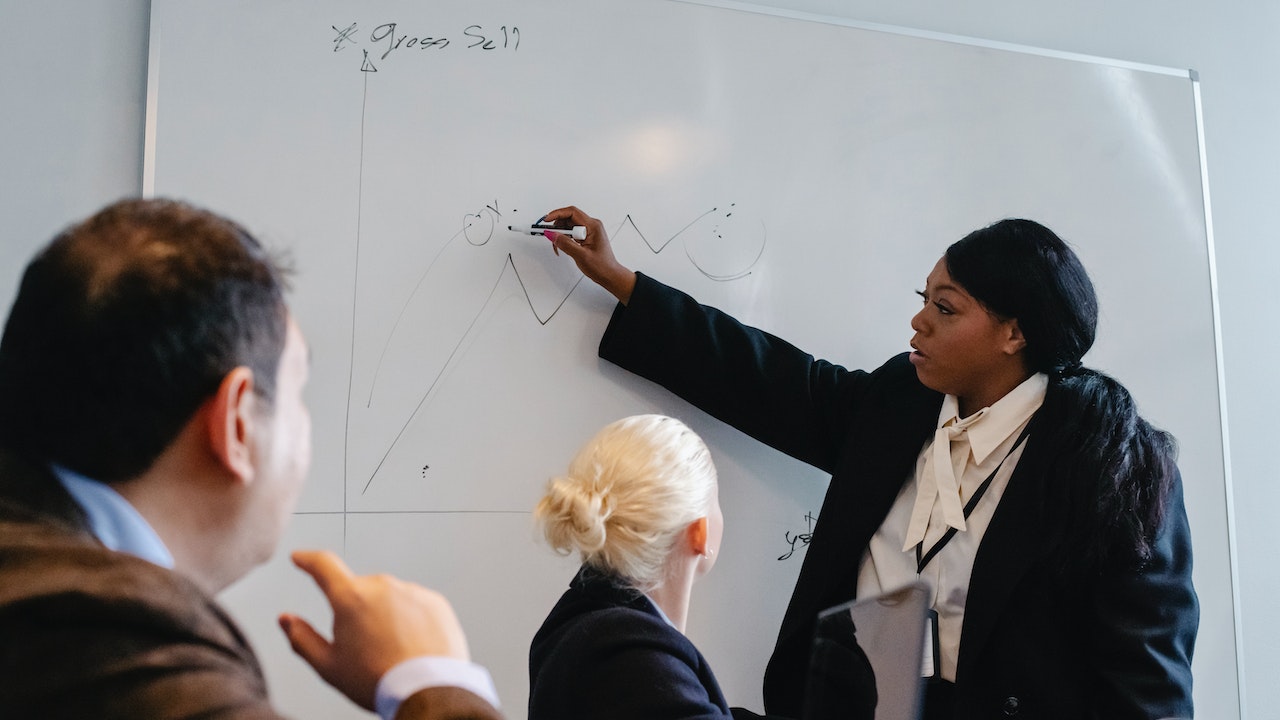 * Gross Sell